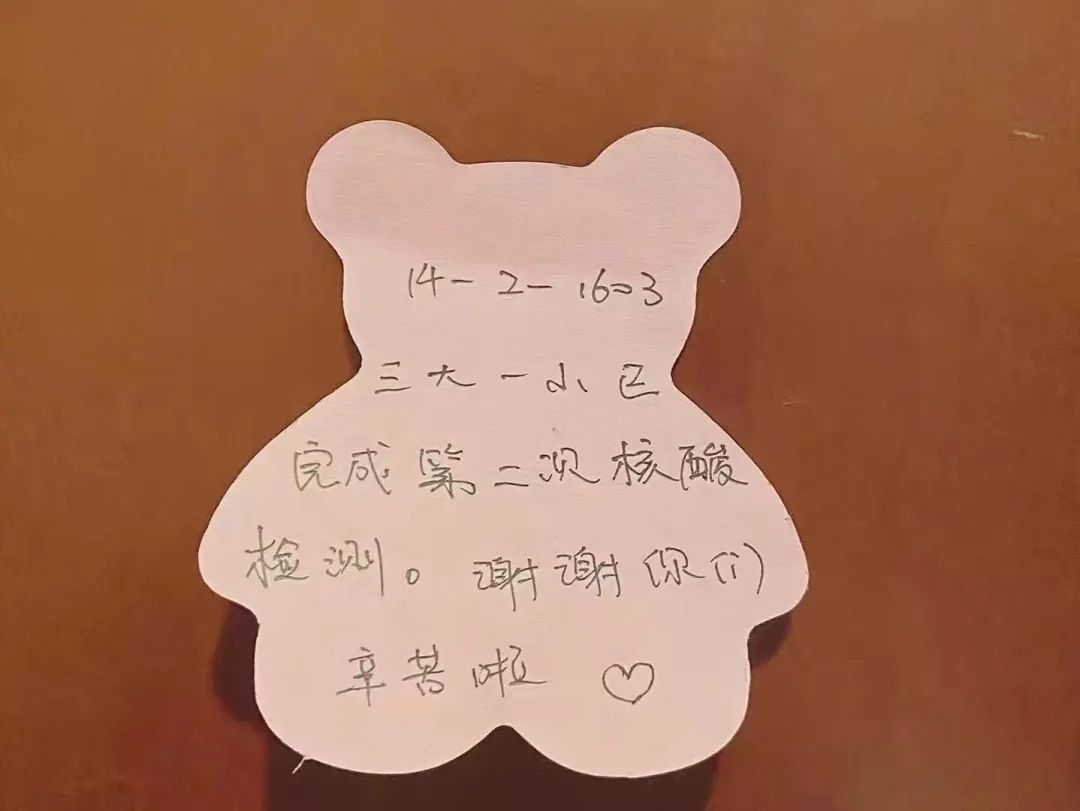 14-2-1603
三大一小已
完成第二次核酸
检测。谢谢你们
辛苦啦♡